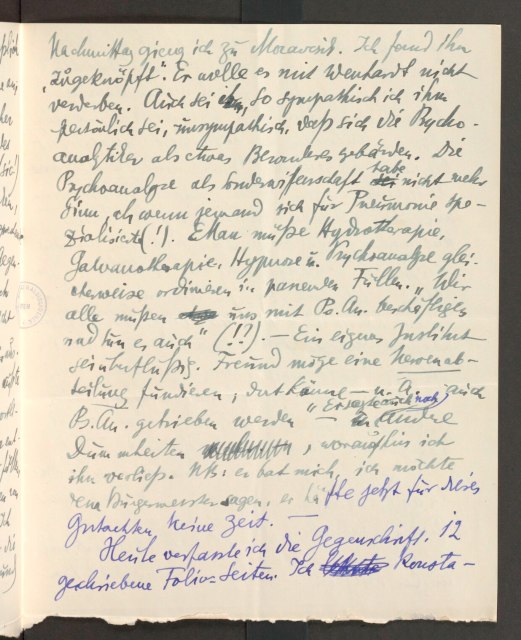 Nachmittag gieng ich zu Moravcsik. Ich fand ihn
„zugeknöpft“. Er wolle es mit Wenhardt nicht
verderben. Auch sei ihm, so sympathisch ich ihm
persönlich sei, unsympathisch, daß sich die Psycho-
analytiker als etwas Besonderes gebärden. Die
Psychoanalyse als Sonderwissenschaft habe nicht mehr
Sinn, als wenn jemand sich für Pneumonie spe-
zialisirte (!). Man müße Hydrotherapie,
Galvanotherapie, Hypnose u. Psychoanalyse glei-
cherweise ordiniren in passenden Fällen. „Wir
alle müßen uns mit Ps. An. beschäftigen
und tun es auch“ (!!). — Ein eigenes Institut
sei überflüßig. Freund möge eine Nervenab-
teilung fundieren, dort könne — u. A. auch
Ps. An. getrieben werden — „Er sagte auch noch)
andere
Dummheiten, woraufhin ich
ihn verließ. NB: er bat mich, ich möchte
dem Bürgermeister sagen, er hätte jetzt für dieses
Gutachten keine Zeit. —
Heute verfasste ich die Gegenschrift. 12
geschriebene Folio-Seiten. Ich Konsta-